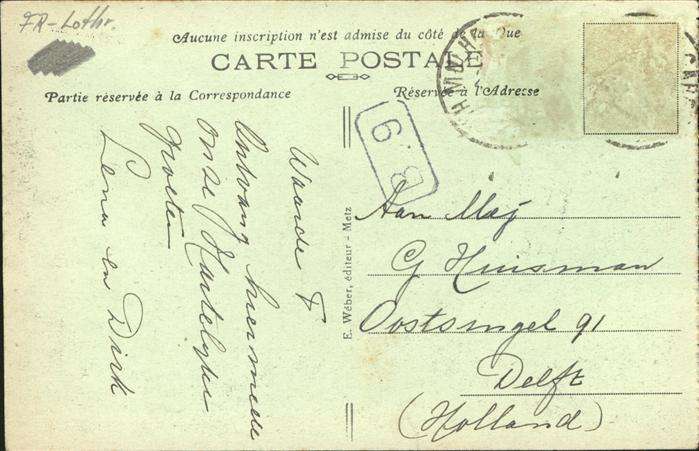 FR-Lothr.
Aucune inscription n'est admise du côté de la Vue
CARTE POSTALE
Partie réservée à la Correspondance
Réservée à l'Adresse
B.9
Waarde F
Ontvang hiermede
onze Hartelyke
groeten
Lena en Dirk
E. Wéber, éditeur - Metz
Aan Mej
G Huisman
Oostsingel 91
Delft
(Holland)